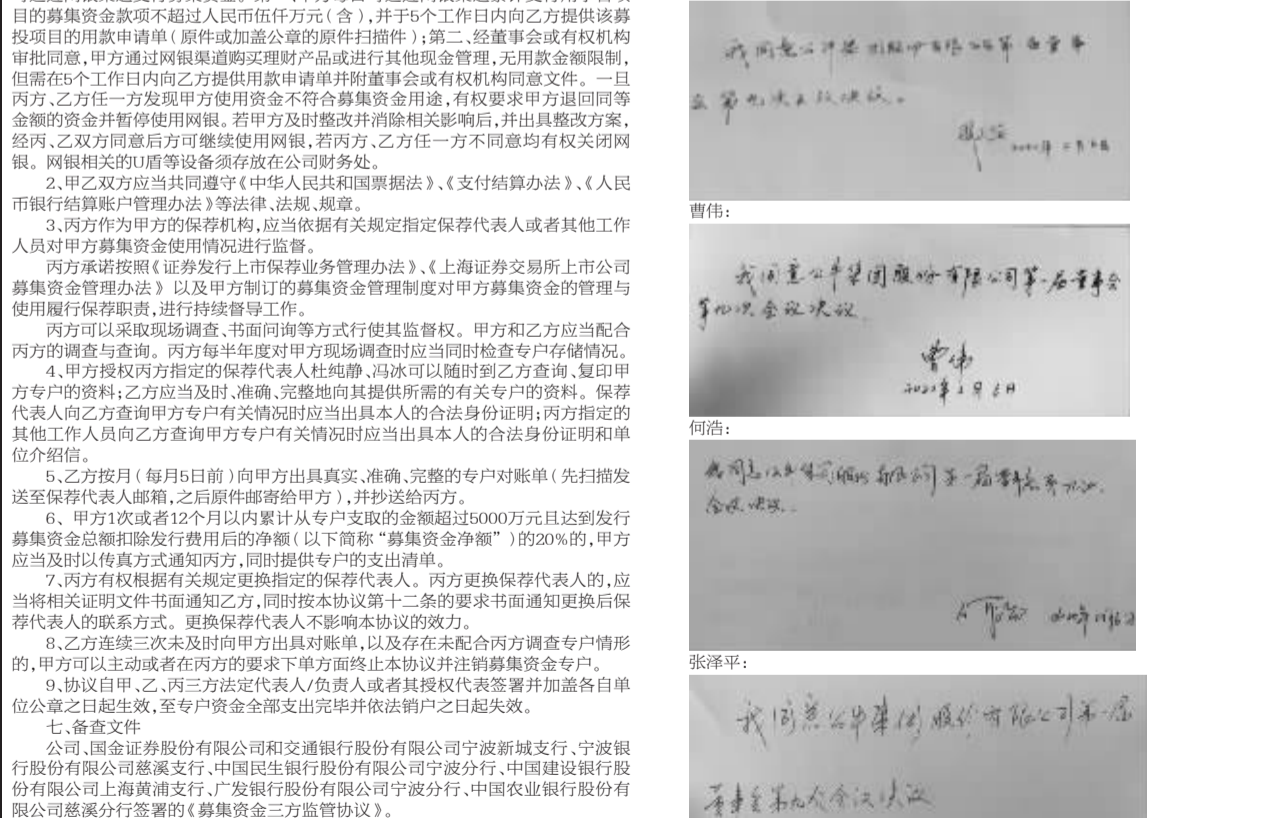 目的募集资金款项不超过人民币伍仟万元(含),并于5个工作日内向乙方提供该募
投项目的用款申请单(原件或加盖公章的原件扫描件);第二、经董事会或有权机构
审批同意,甲方通过网银渠道购买理财产品或进行其他现金管理,无用款金额限制,
但需在5个工作日内向乙方提供用款申请单并附董事会或有权机构同意文件。一旦
丙方、乙方任一方发现甲方使用资金不符合募集资金用途,有权要求甲方退回同等
金额的资金并暂停使用网银。若甲方及时整改并消除相关影响后,并出具整改方案,
经丙、乙双方同意后方可继续使用网银,若丙方、乙方任一方不同意均有权关闭网
银。网银相关的U盾等设备须存放在公司财务处。
2、甲乙双方应当共同遵守《中华人民共和国票据法》、《支付结算办法》、《人民
币银行结算账户管理办法》等法律、法规、规章。
3、丙方作为甲方的保荐机构,应当依据有关规定指定保荐代表人或者其他工作
人员对甲方募集资金使用情况进行监督。
丙方承诺按照《证券发行上市保荐业务管理办法》、《上海证券交易所上市公司
募集资金管理办法》以及甲方制订的募集资金管理制度对甲方募集资金的管理与
使用履行保荐职责,进行持续督导工作。
丙方可以采取现场调查、书面问询等方式行使其监督权。甲方和乙方应当配合
丙方的调查与查询。丙方每半年度对甲方现场调查时应当同时检查专户存储情况。
4、甲方授权丙方指定的保荐代表人杜纯静、冯冰可以随时到乙方查询、复印甲
方专户的资料;乙方应当及时、准确、完整地向其提供所需的有关专户的资料。保荐
代表人向乙方查询甲方专户有关情况时应当出具本人的合法身份证明;丙方指定的
其他工作人员向乙方查询甲方专户有关情况时应当出具本人的合法身份证明和单
位介绍信。
5、乙方按月(每月5日前)向甲方出具真实、准确、完整的专户对账单(先扫描发
送至保荐代表人邮箱,之后原件邮寄给甲方),并抄送给丙方。
6、甲方1次或者12个月以内累计从专户支取的金额超过5000万元且达到发行
募集资金总额扣除发行费用后的净额(以下简称“募集资金净额”)的20%的,甲方
应当及时以传真方式通知丙方,同时提供专户的支出清单。
7、丙方有权根据有关规定更换指定的保荐代表人。丙方更换保荐代表人的,应
当将相关证明文件书面通知乙方,同时按本协议第十二条的要求书面通知更换后保
荐代表人的联系方式。更换保荐代表人不影响本协议的效力。
8、乙方连续三次未及时向甲方出具对账单,以及存在未配合丙方调查专户情形
的,甲方可以主动或者在丙方的要求下单方面终止本协议并注销募集资金专户。
9、协议自甲、乙、丙三方法定代表人/负责人或者其授权代表签署并加盖各自单
位公章之日起生效,至专户资金全部支出完毕并依法销户之日起失效。
七、备查文件
公司、国金证券股份有限公司和交通银行股份有限公司宁波新城支行、宁波银
行股份有限公司慈溪支行、中国民生银行股份有限公司宁波分行、中国建设银行股
份有限公司上海黄浦支行、广发银行股份有限公司宁波分行、中国农业银行股份有
限公司慈溪分行签署的《募集资金三方监管协议》。
我同意公牛集团股份有限公司第一届董事
会第九次会议决议。
曹伟:
我同意公牛集团股份有限公司第一届董事会
第九次会议决议
曹伟
2020年2月6日
何浩:
我同意公牛集团股份有限公司第一届董事会第九次
会议决议.
张泽平:
我同意公牛集团股份有限公司第一届
董事会第九次会议决议